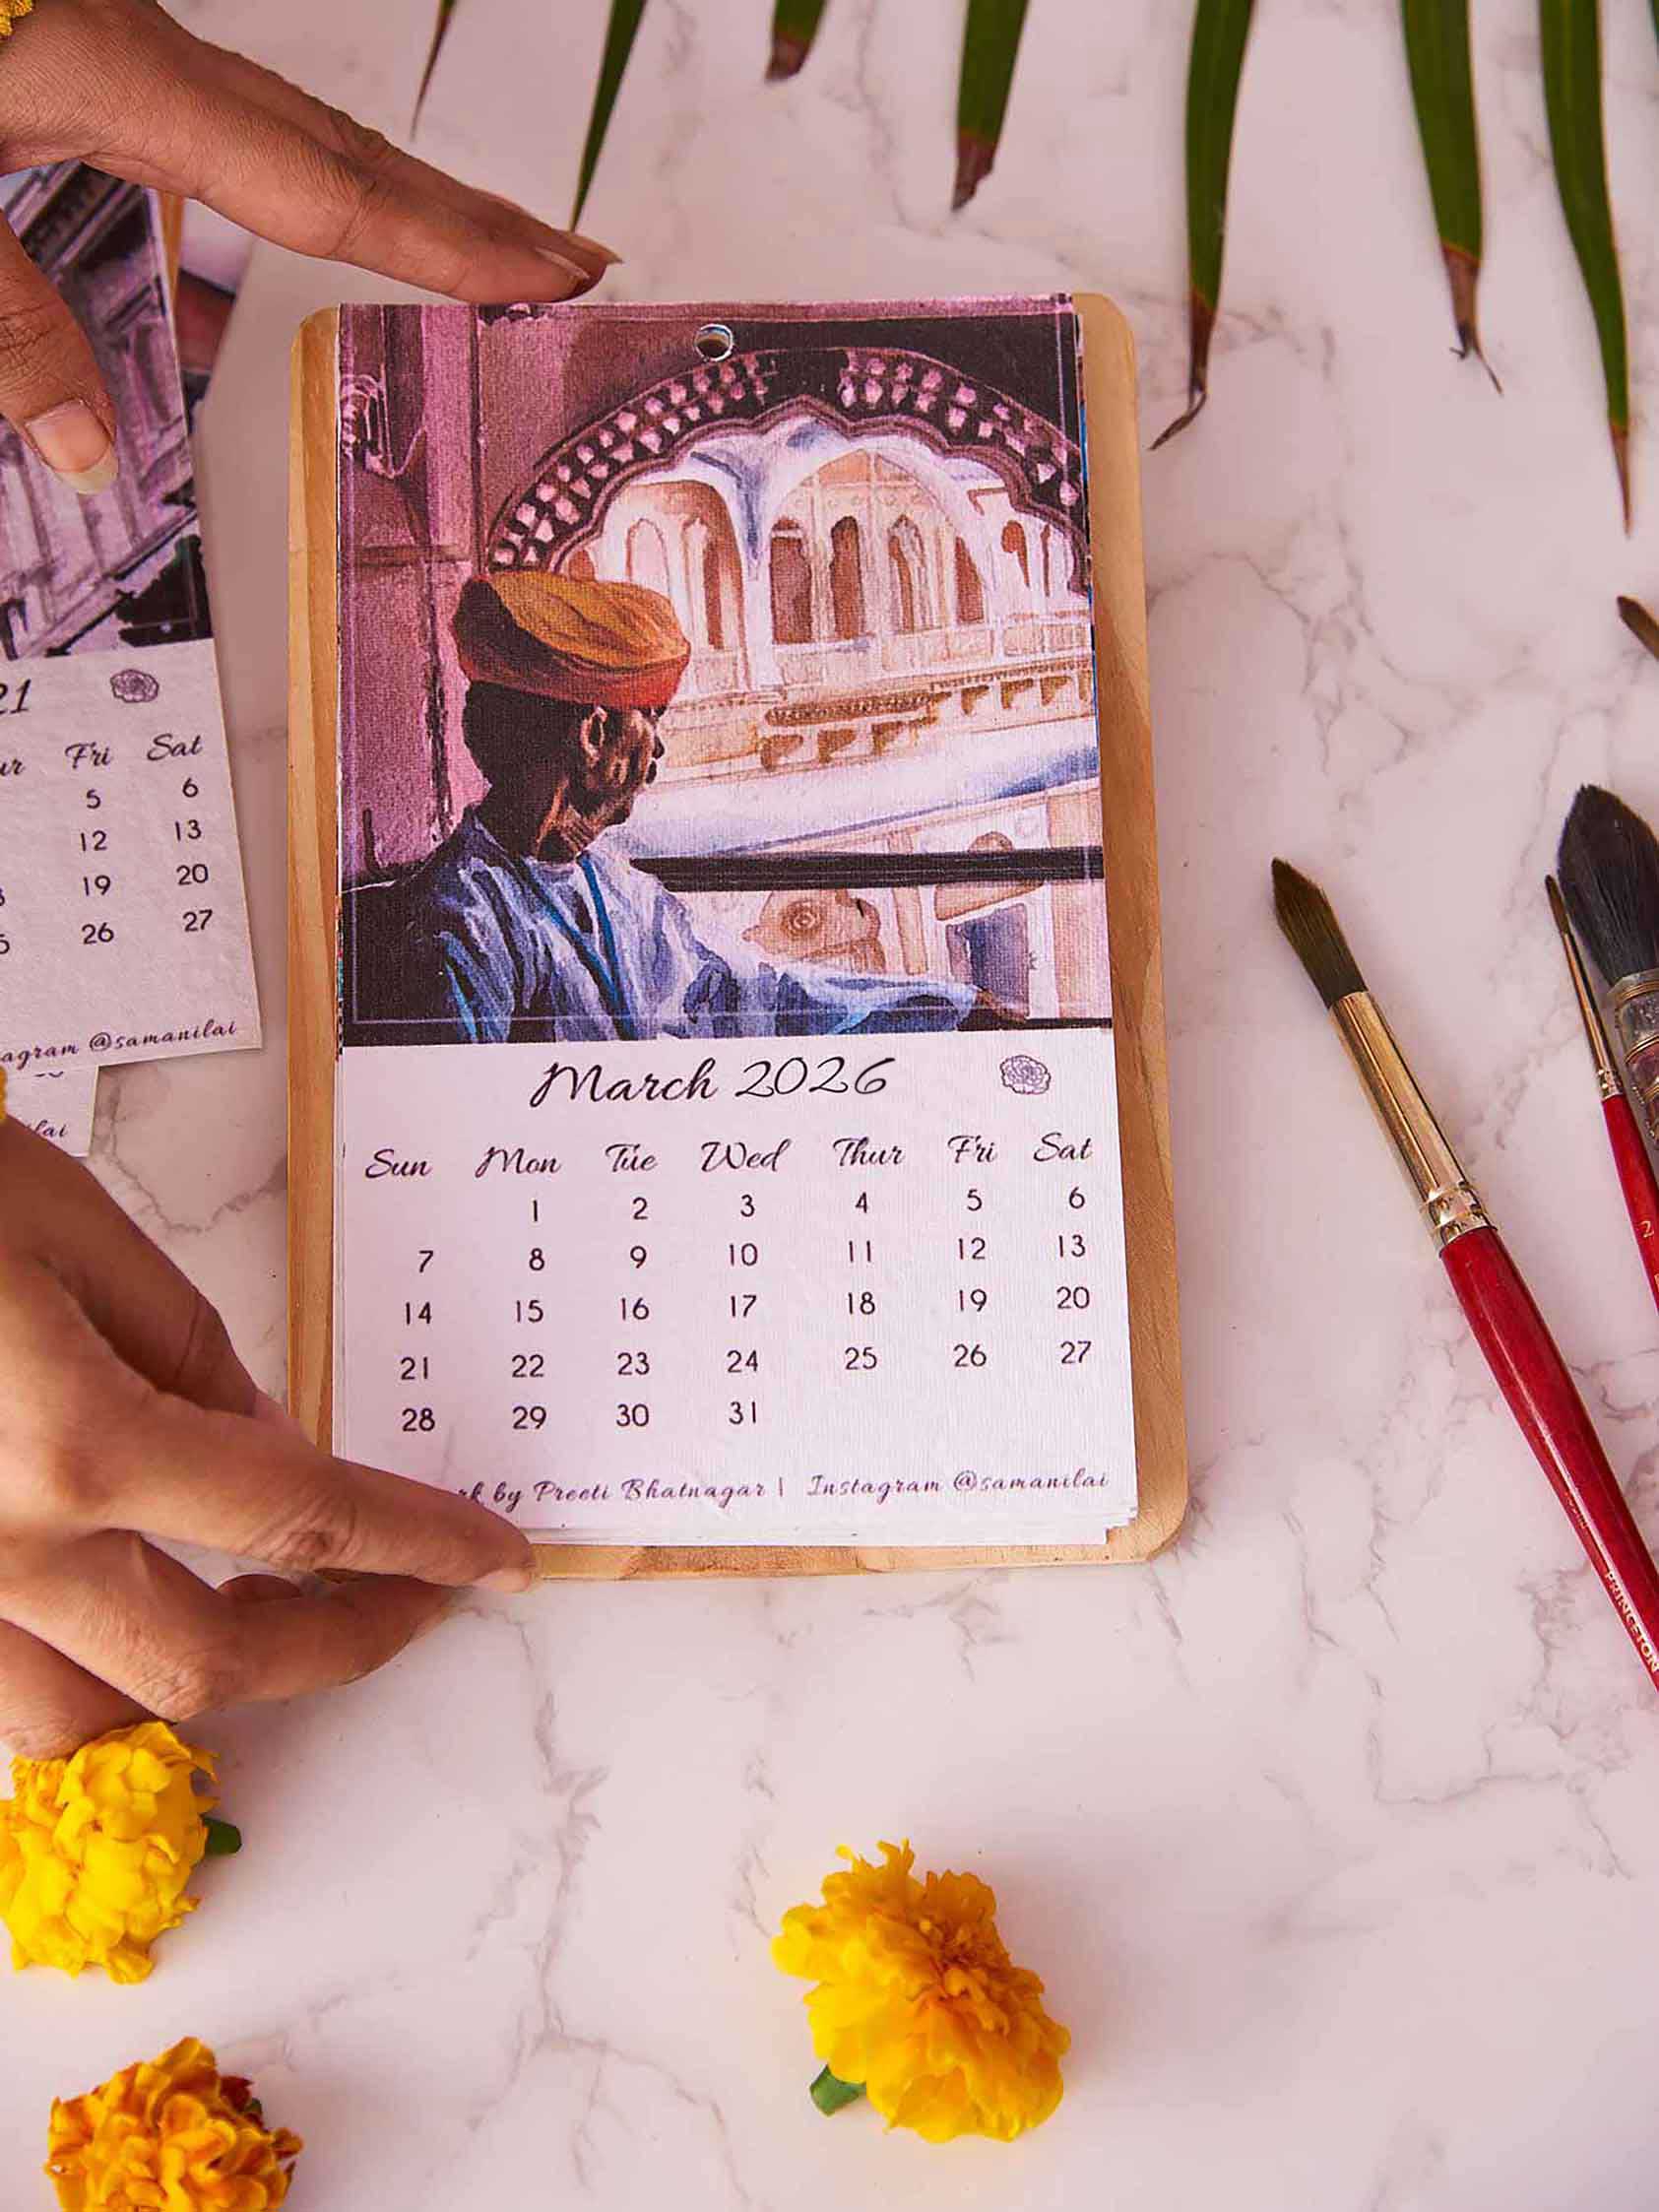 March 2026
Sun Mon Tue Wed Thur Fri Sat
1 2 3 4 5 6
7 8 9 10 11 12 13
14 15 16 17 18 19 20
21 22 23 24 25 26 27
28 29 30 31
by Preeti Bhatnagar | Instagram @samanilai
21
Fri Sat
5 6
12 13
19 20
26 27
@samanilai
2
PRINCETON